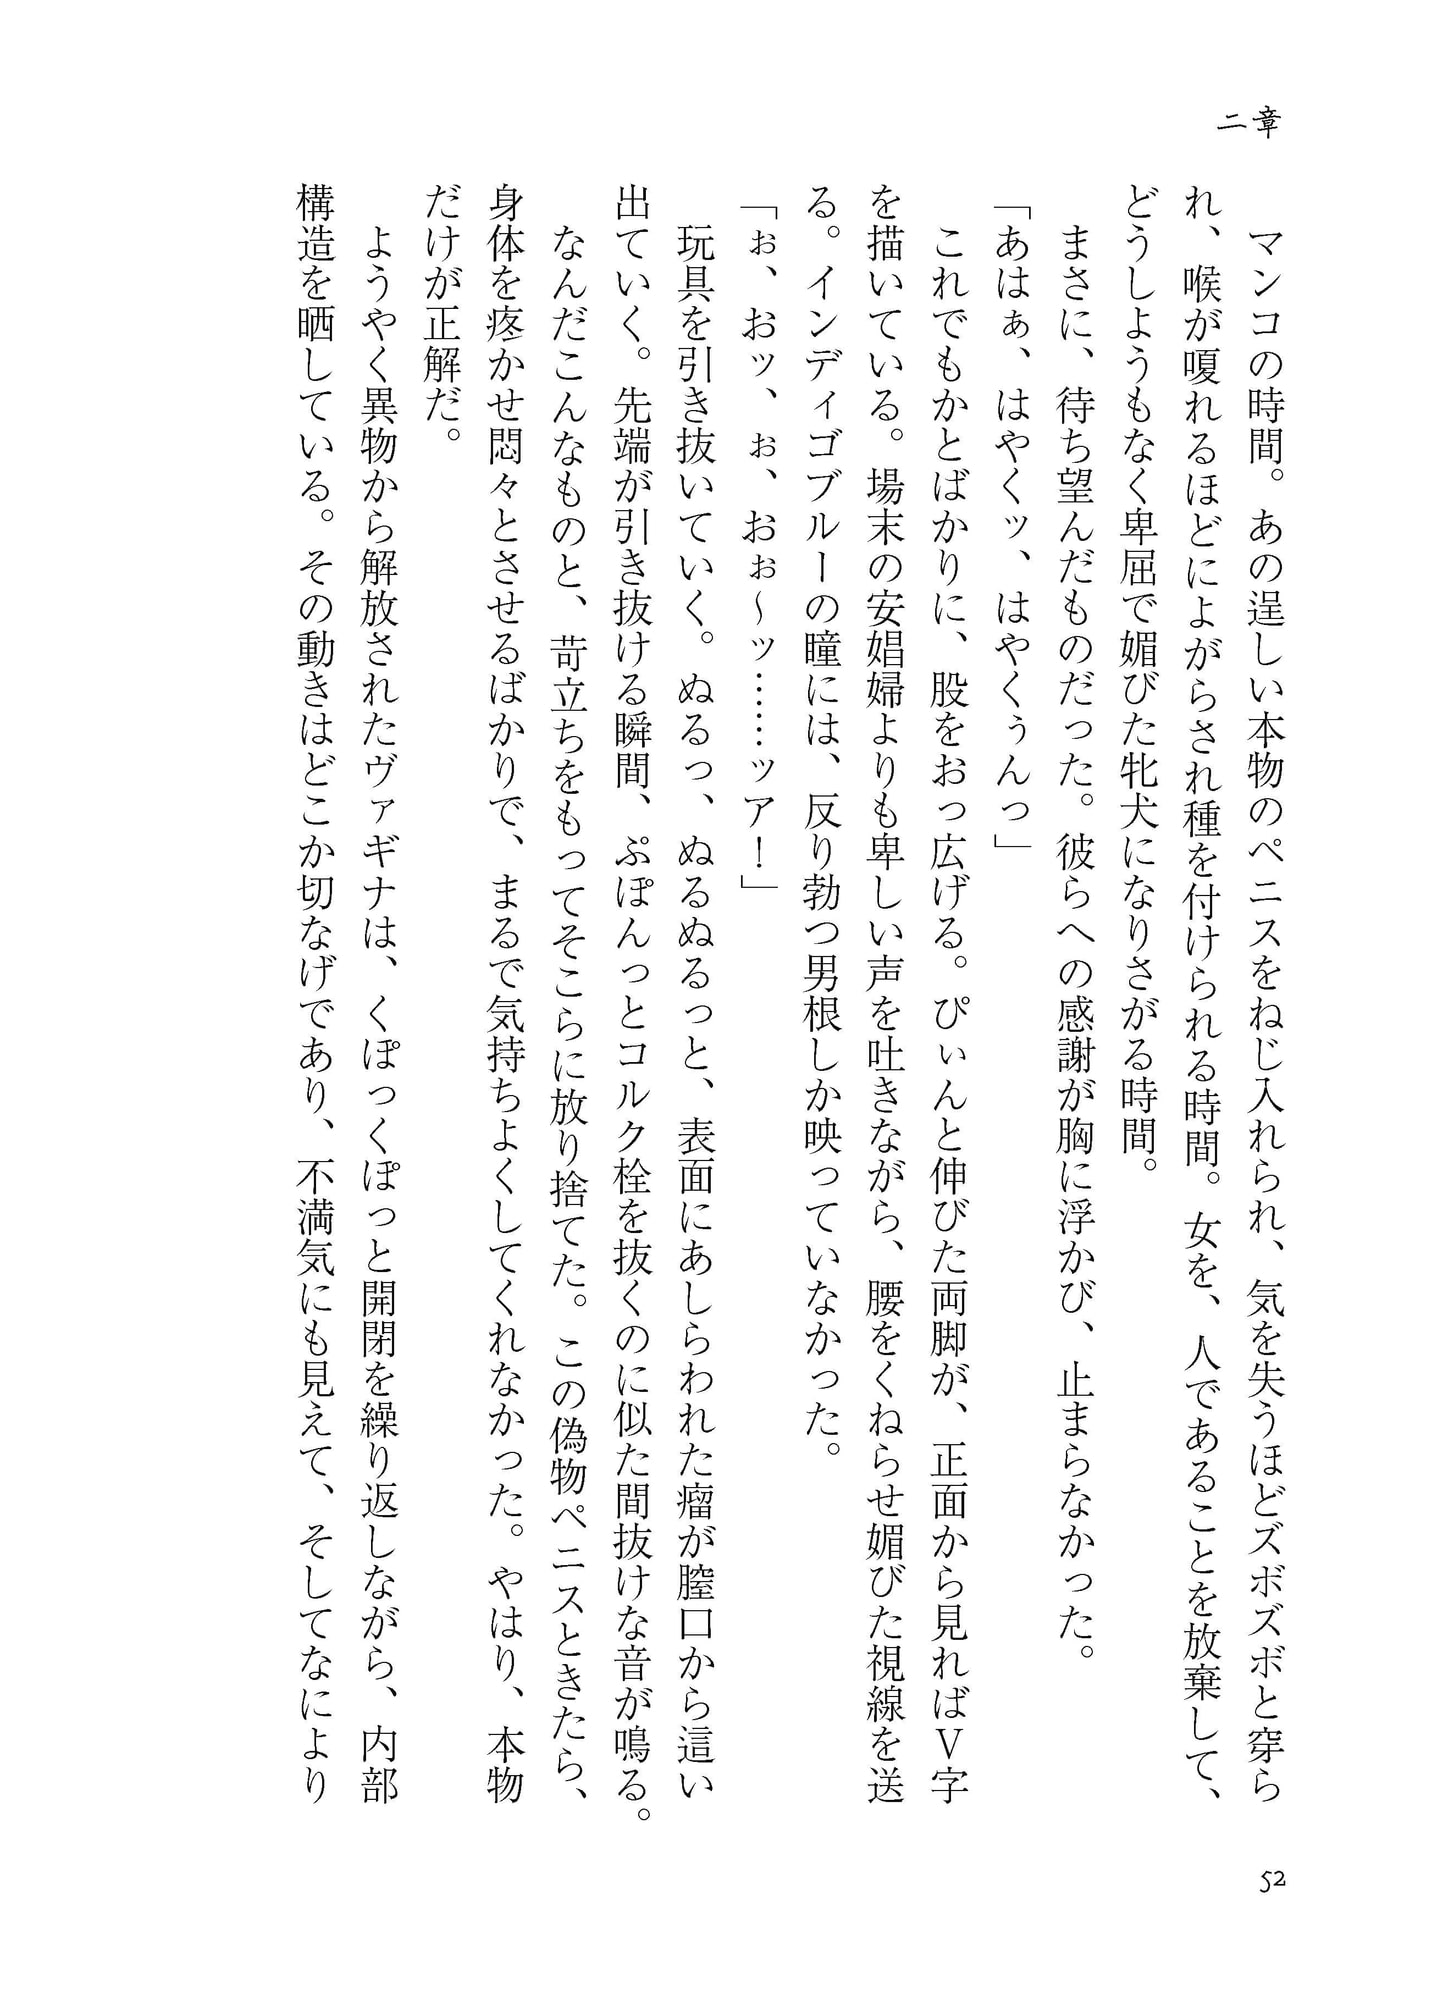 二章
　マンコの時間。あの逞しい本物のペニスをねじ入れられ、気を失うほどズボズボと穿ら
れ、喉が嗄れるほどによがらされ種を付けられる時間。女を、人であることを放棄して、
どうしようもなく卑屈で媚びた牝犬になりさがる時間。
　まさに、待ち望んだものだった。彼らへの感謝が胸に浮かび、止まらなかった。
「あはぁ、はやくッ、はやくぅんっ」
　これでもかとばかりに、股をおっ広げる。ぴぃんと伸びた両脚が、正面から見ればＶ字
を描いている。場末の安娼婦よりも卑しい声を吐きながら、腰をくねらせ媚びた視線を送
る。インディゴブルーの瞳には、反り勃つ男根しか映っていなかった。
「ぉ、おッ、ぉ、おぉ～ッ……ッア！」
　玩具を引き抜いていく。ぬるっ、ぬるぬるっと、表面にあしらわれた瘤が膣口から這い
出ていく。先端が引き抜ける瞬間、ぷぽんっとコルク栓を抜くのに似た間抜けな音が鳴る。
　なんだこんなものと、苛立ちをもってそこらに放り捨てた。この偽物ペニスときたら、
身体を疼かせ悶々とさせるばかりで、まるで気持ちよくしてくれなかった。やはり、本物
だけが正解だ。
　ようやく異物から解放されたヴァギナは、くぽっくぽっと開閉を繰り返しながら、内部
構造を晒している。その動きはどこか切なげであり、不満気にも見えて、そしてなにより
52